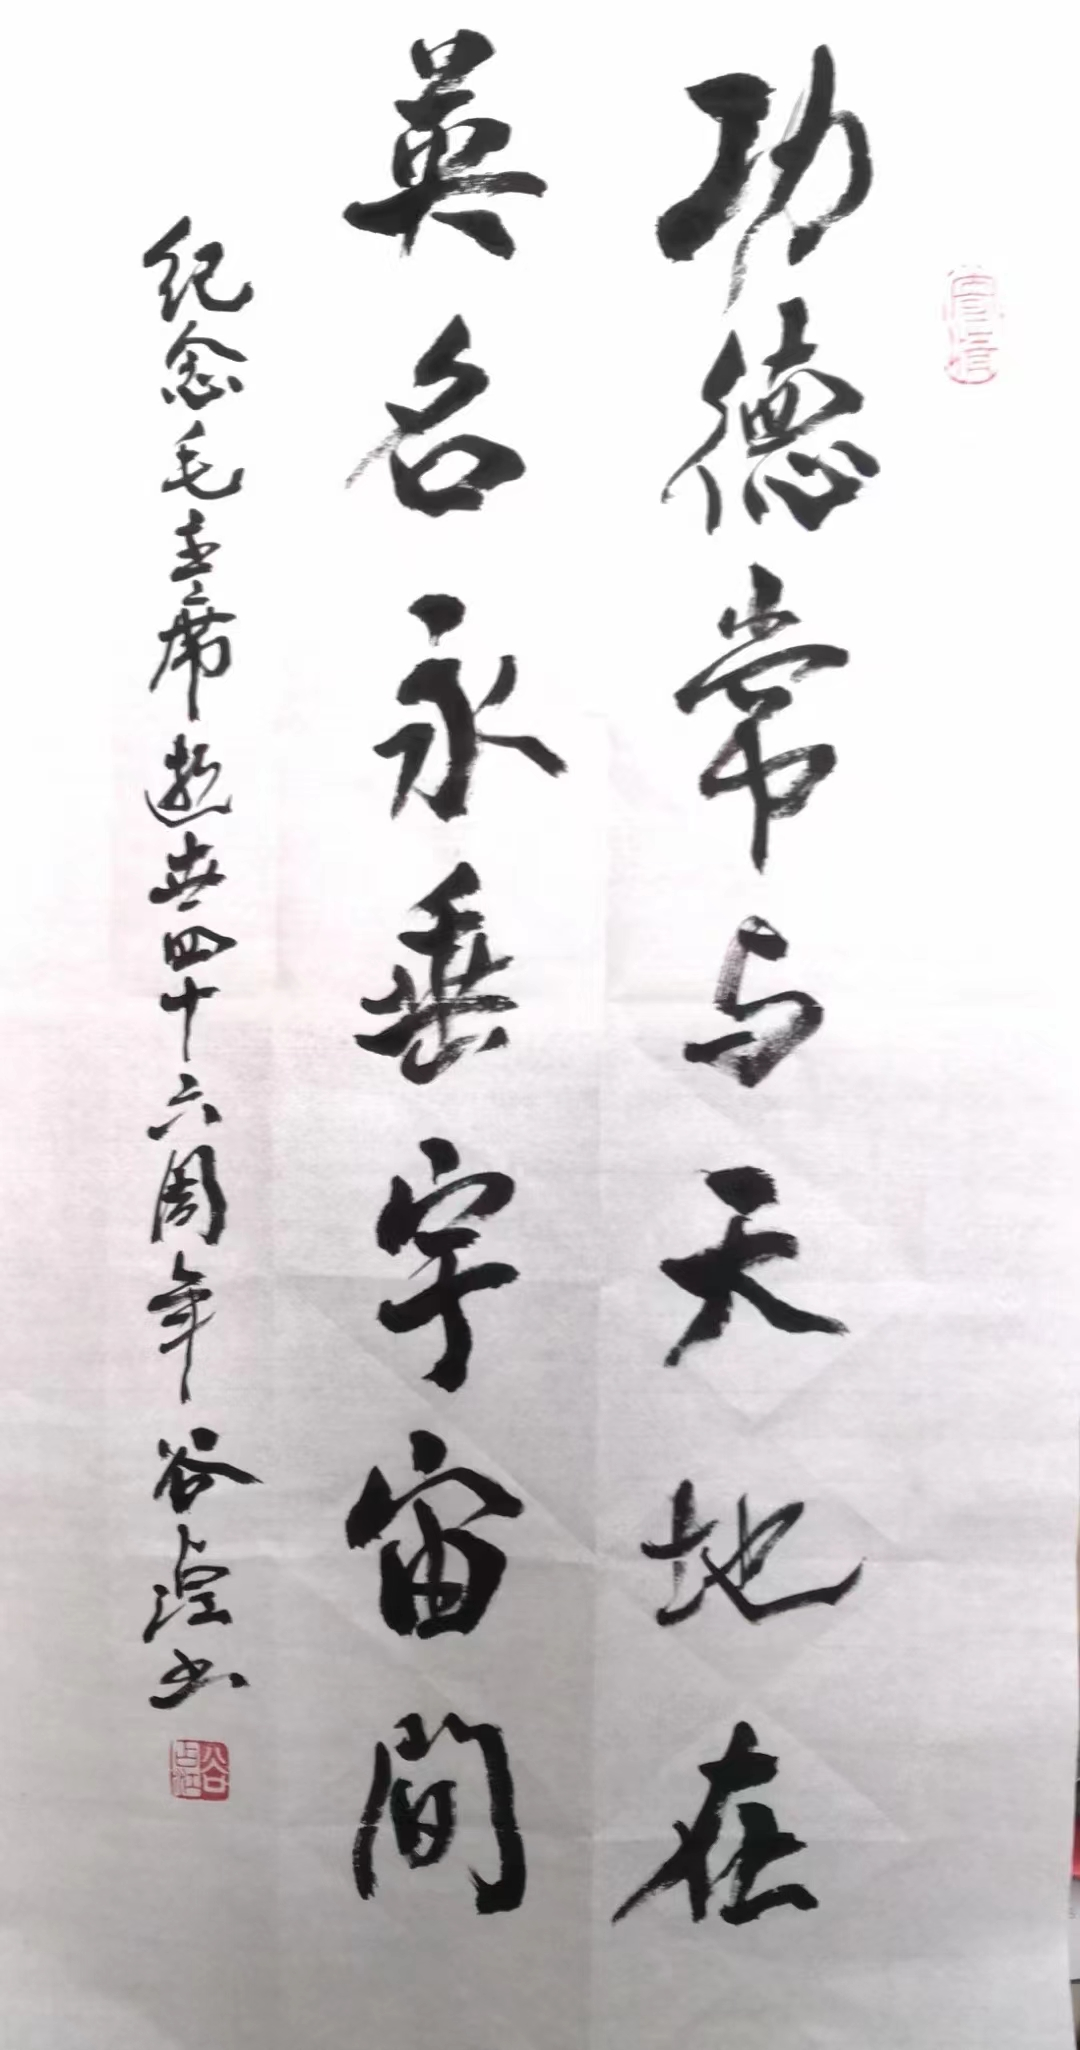 功德常与天地在
英名永垂宇宙間
纪念毛主席逝世四十六周年 谷 书
谷